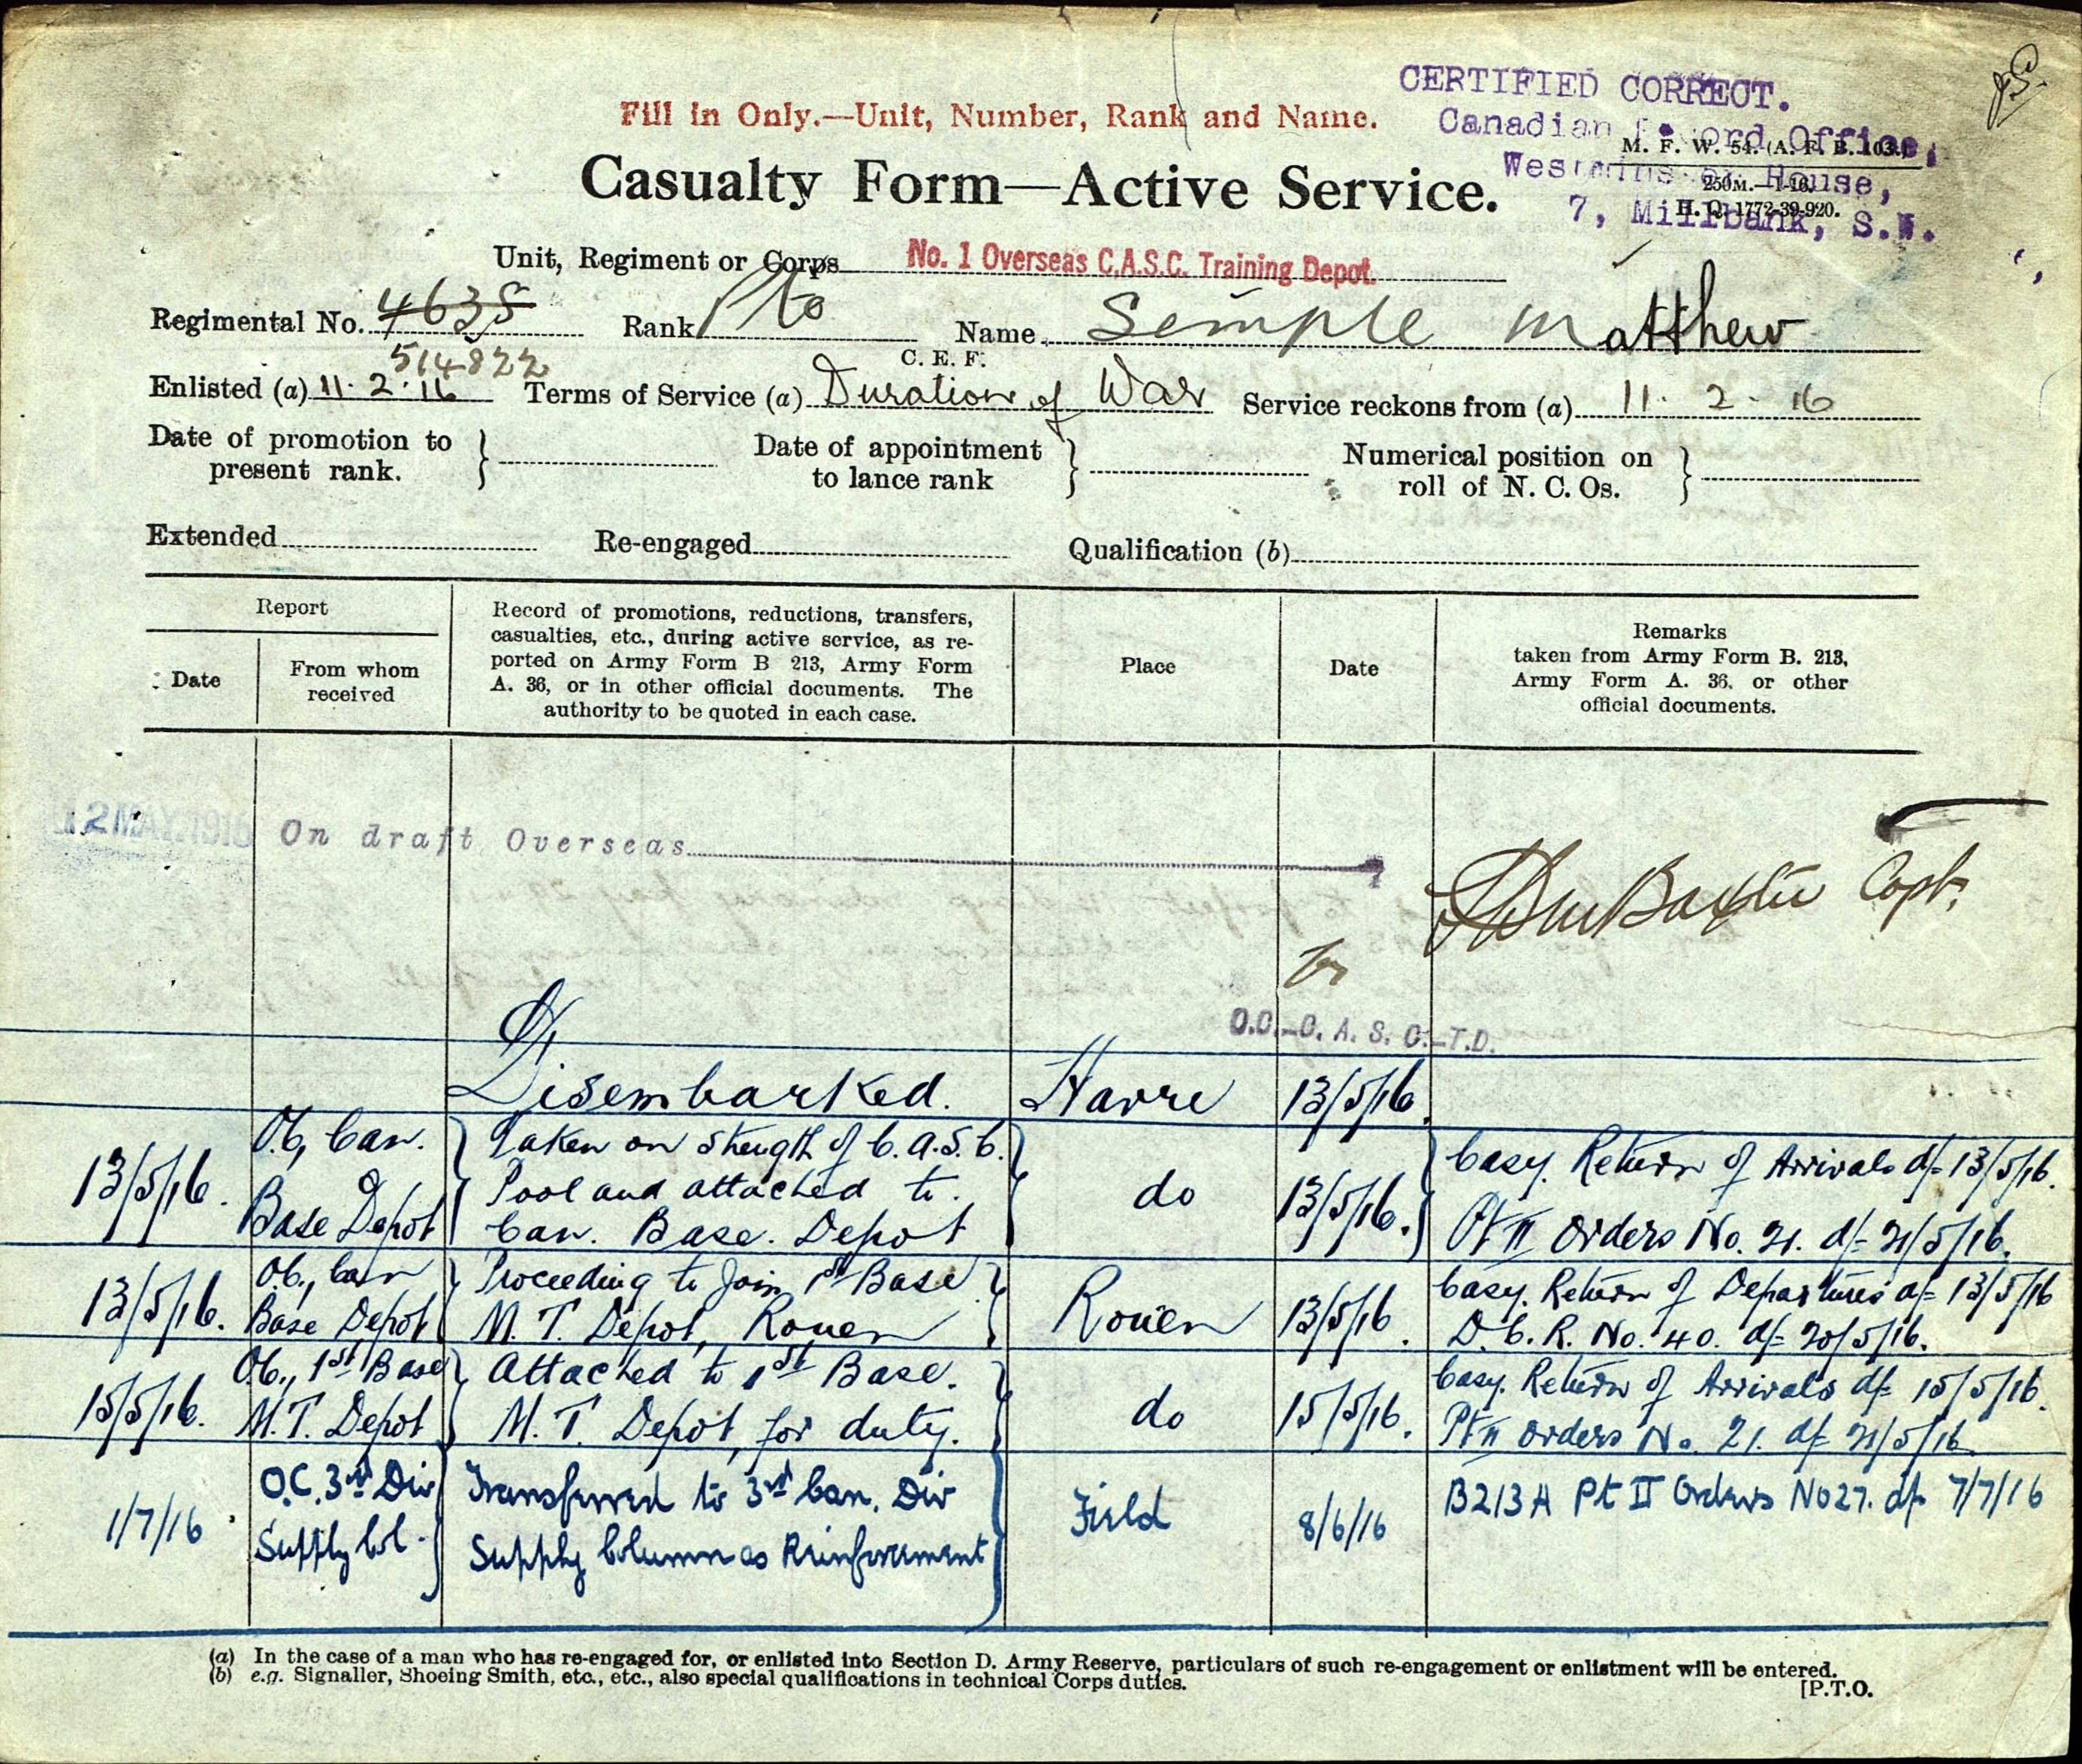 CERTIFIED CORRECT.
Fill in Only.—Unit, Number, Rank and Name.
Canadian Record Office,
M. F. W. 54. (A. F. B. 103.)
Westminster House,
250M.—1-16.
H. Q. 1772-39-920.
7, Millbank, S.W.
Casualty Form—Active Service.
Unit, Regiment or Corps No. 1 Overseas C.A.S.C. Training Depot.
Regimental No. 4635 Rank Pte Name Semple Matthew
514822
C. E. F.
Enlisted (a) 11.2.16 Terms of Service (a) Duration of War Service reckons from (a) 11. 2. 16
Date of promotion to present rank. Date of appointment to lance rank Numerical position on roll of N. C. Os.
Extended Re-engaged Qualification (b)
Report
Date
From whom received
Record of promotions, reductions, transfers,
casualties, etc., during active service, as re-
ported on Army Form B 213, Army Form
A. 36, or in other official documents. The
authority to be quoted in each case.
Place
Date
Remarks
taken from Army Form B. 213,
Army Form A. 36. or other
official documents.
12 MAY 1916 On draft Overseas
Baxter Capt.
for
O.C.—C. A. S. C.—T.D.
Disembarked. Havre 13/5/16.
13/5/16. O.C., Can. Base Depot
Taken on strength of C.A.S.C.
Pool and attached to.
Can. Base. Depot
do 13/5/16.
Casy. Return of Arrivals d/- 13/5/16.
Pt II Orders No. 21. d/- 21/5/16.
13/5/16. O.C., Can Base Depot
Proceeding to join 1st Base
M. T. Depot, Rouen
Rouen 13/5/16.
Casy. Return of Departures d/- 13/5/16
D.C.R. No. 40. d/- 20/5/16.
15/5/16. O.C., 1st Base M.T. Depot
Attached to 1st Base.
M. T. Depot, for duty.
do 15/5/16.
Casy. Return of Arrivals d/- 15/5/16.
Pt II Orders No. 21. d/- 21/5/16
1/7/16 O.C. 3rd Div Supply Col.
Transferred to 3rd Can. Div
Supply Column as Reinforcement
Field 8/6/16
B213A Pt II Orders No 27. d/- 7/7/16
(a) In the case of a man who has re-engaged for, or enlisted into Section D. Army Reserve, particulars of such re-engagement or enlistment will be entered.
(b) e.g. Signaller, Shoeing Smith, etc., etc., also special qualifications in technical Corps duties.
[P.T.O.